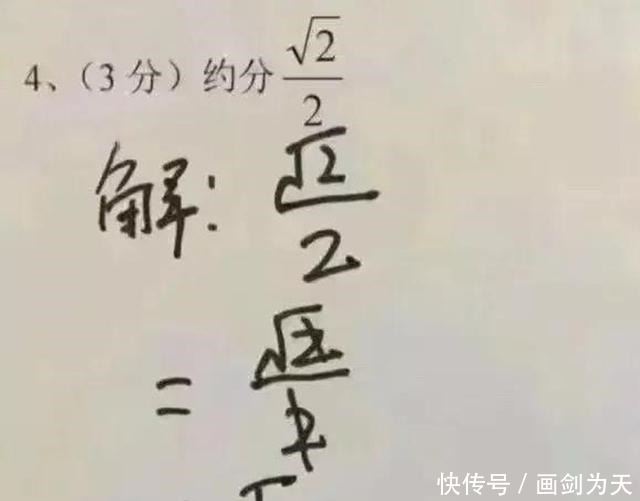 4、（3 分）约分 √2/2
解: √2/2
= √2/2
快传号 / 画剑为天